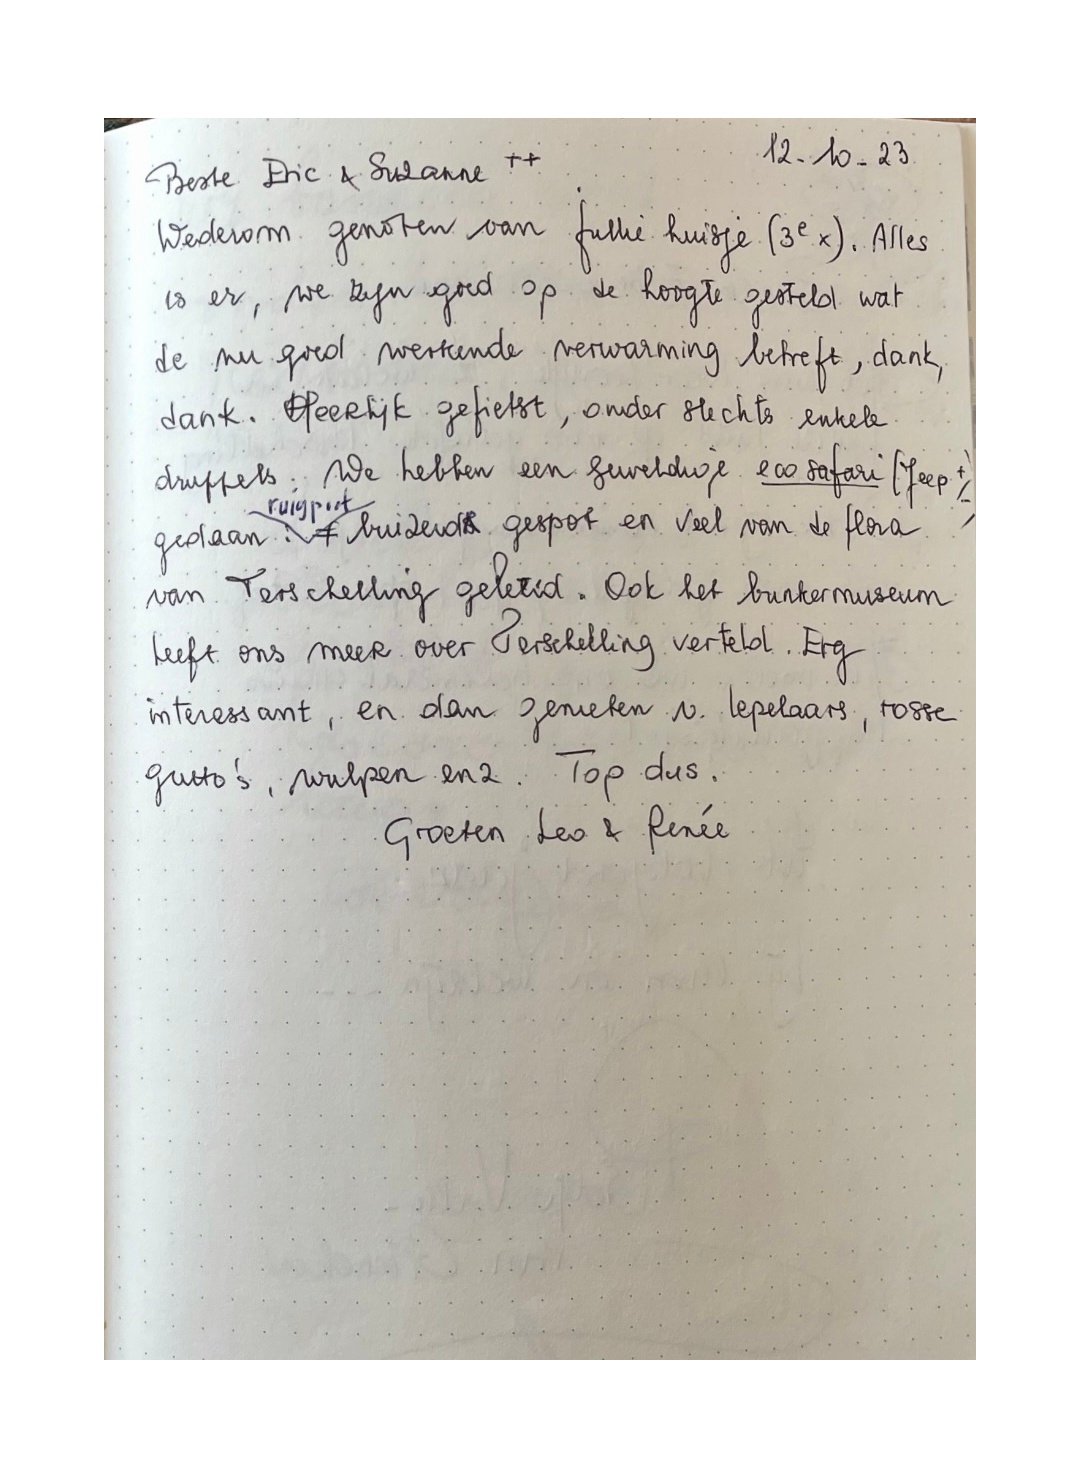 12-10-23
Beste Eric & Suzanne ++
Wederom genoten van jullie huisje (3e x). Alles
is er, we zijn goed op de hoogte gesteld wat
de nu goed werkende verwarming betreft, dank,
dank. Heerlijk gefietst, onder slechts enkele
druppels. We hebben een geweldige eco safari (Jeep +/-
ruigpoot
gedaan : buizerds gespot en veel van de flora
van Terschelling geleerd. Ook het bunkermuseum
heeft ons meer over Terschelling verteld. Erg
interessant, en dan genieten v. lepelaars, rosse
grutto's, wulpen enz. Top dus.
Groeten Leo & Renée